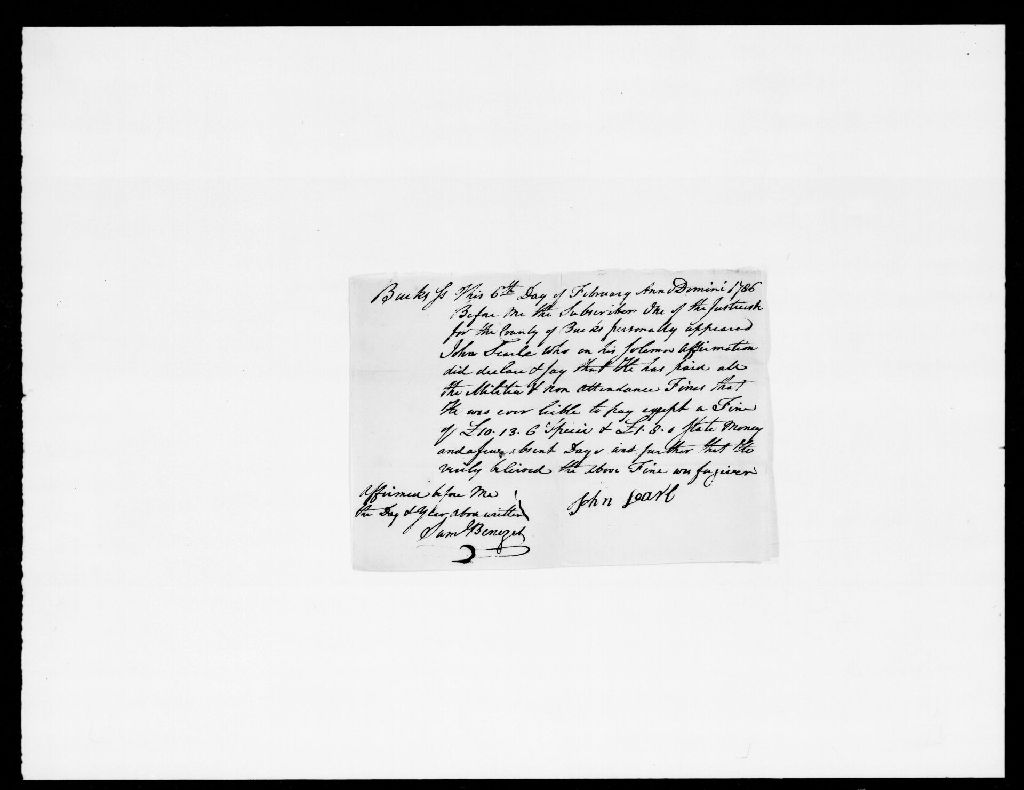 Bucks ss This 6th Day of February Anno Domini 1786
Before Me the Subscriber One of the Justices
for the County of Bucks personally appeared
John Searle Who on his Solemn Affirmation
did declare & Say that He has paid all
the Militia & Non Attendance Fines that
He was ever lieble to pay except a Fine
of £10.13.6 Specie & £1.8.0 State Money
and a few absent Days and further that He
verily beleived the above Fine was forgiven
Affirmed before Me
the Day & Year above written
John Searl
Saml Benezet